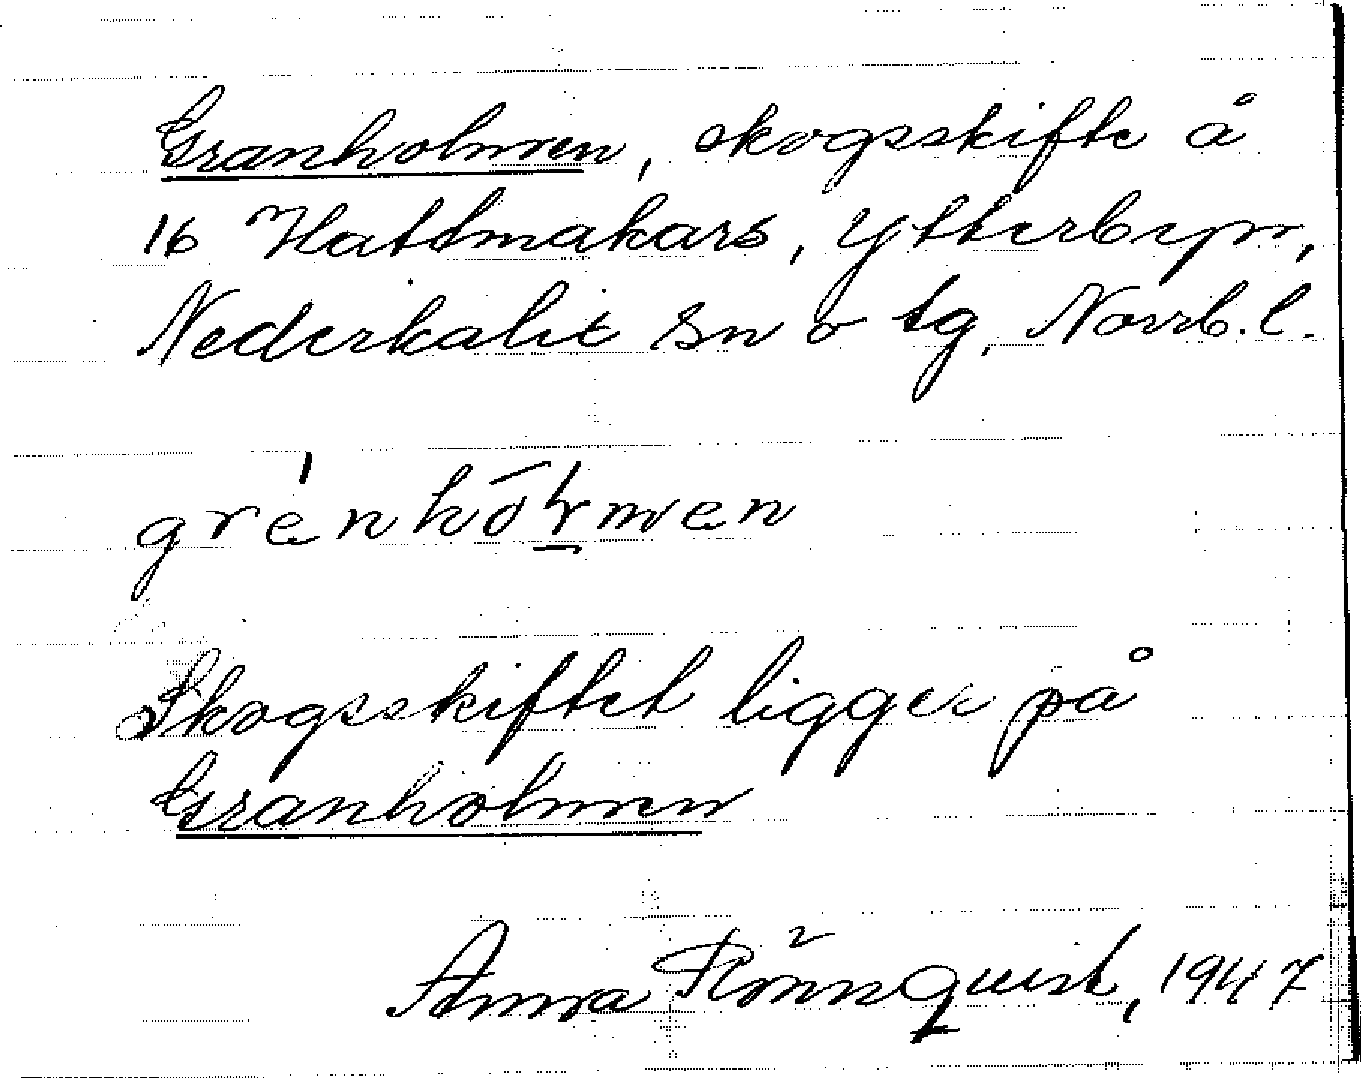 Granholmen, skogsskifte å
16 Hattmakars, Ytterbyn,
Nederkalix sn o tg, Norrb. l.
Skogsskiftet ligger på
Granholmen
Anna Rönnquist, 1947